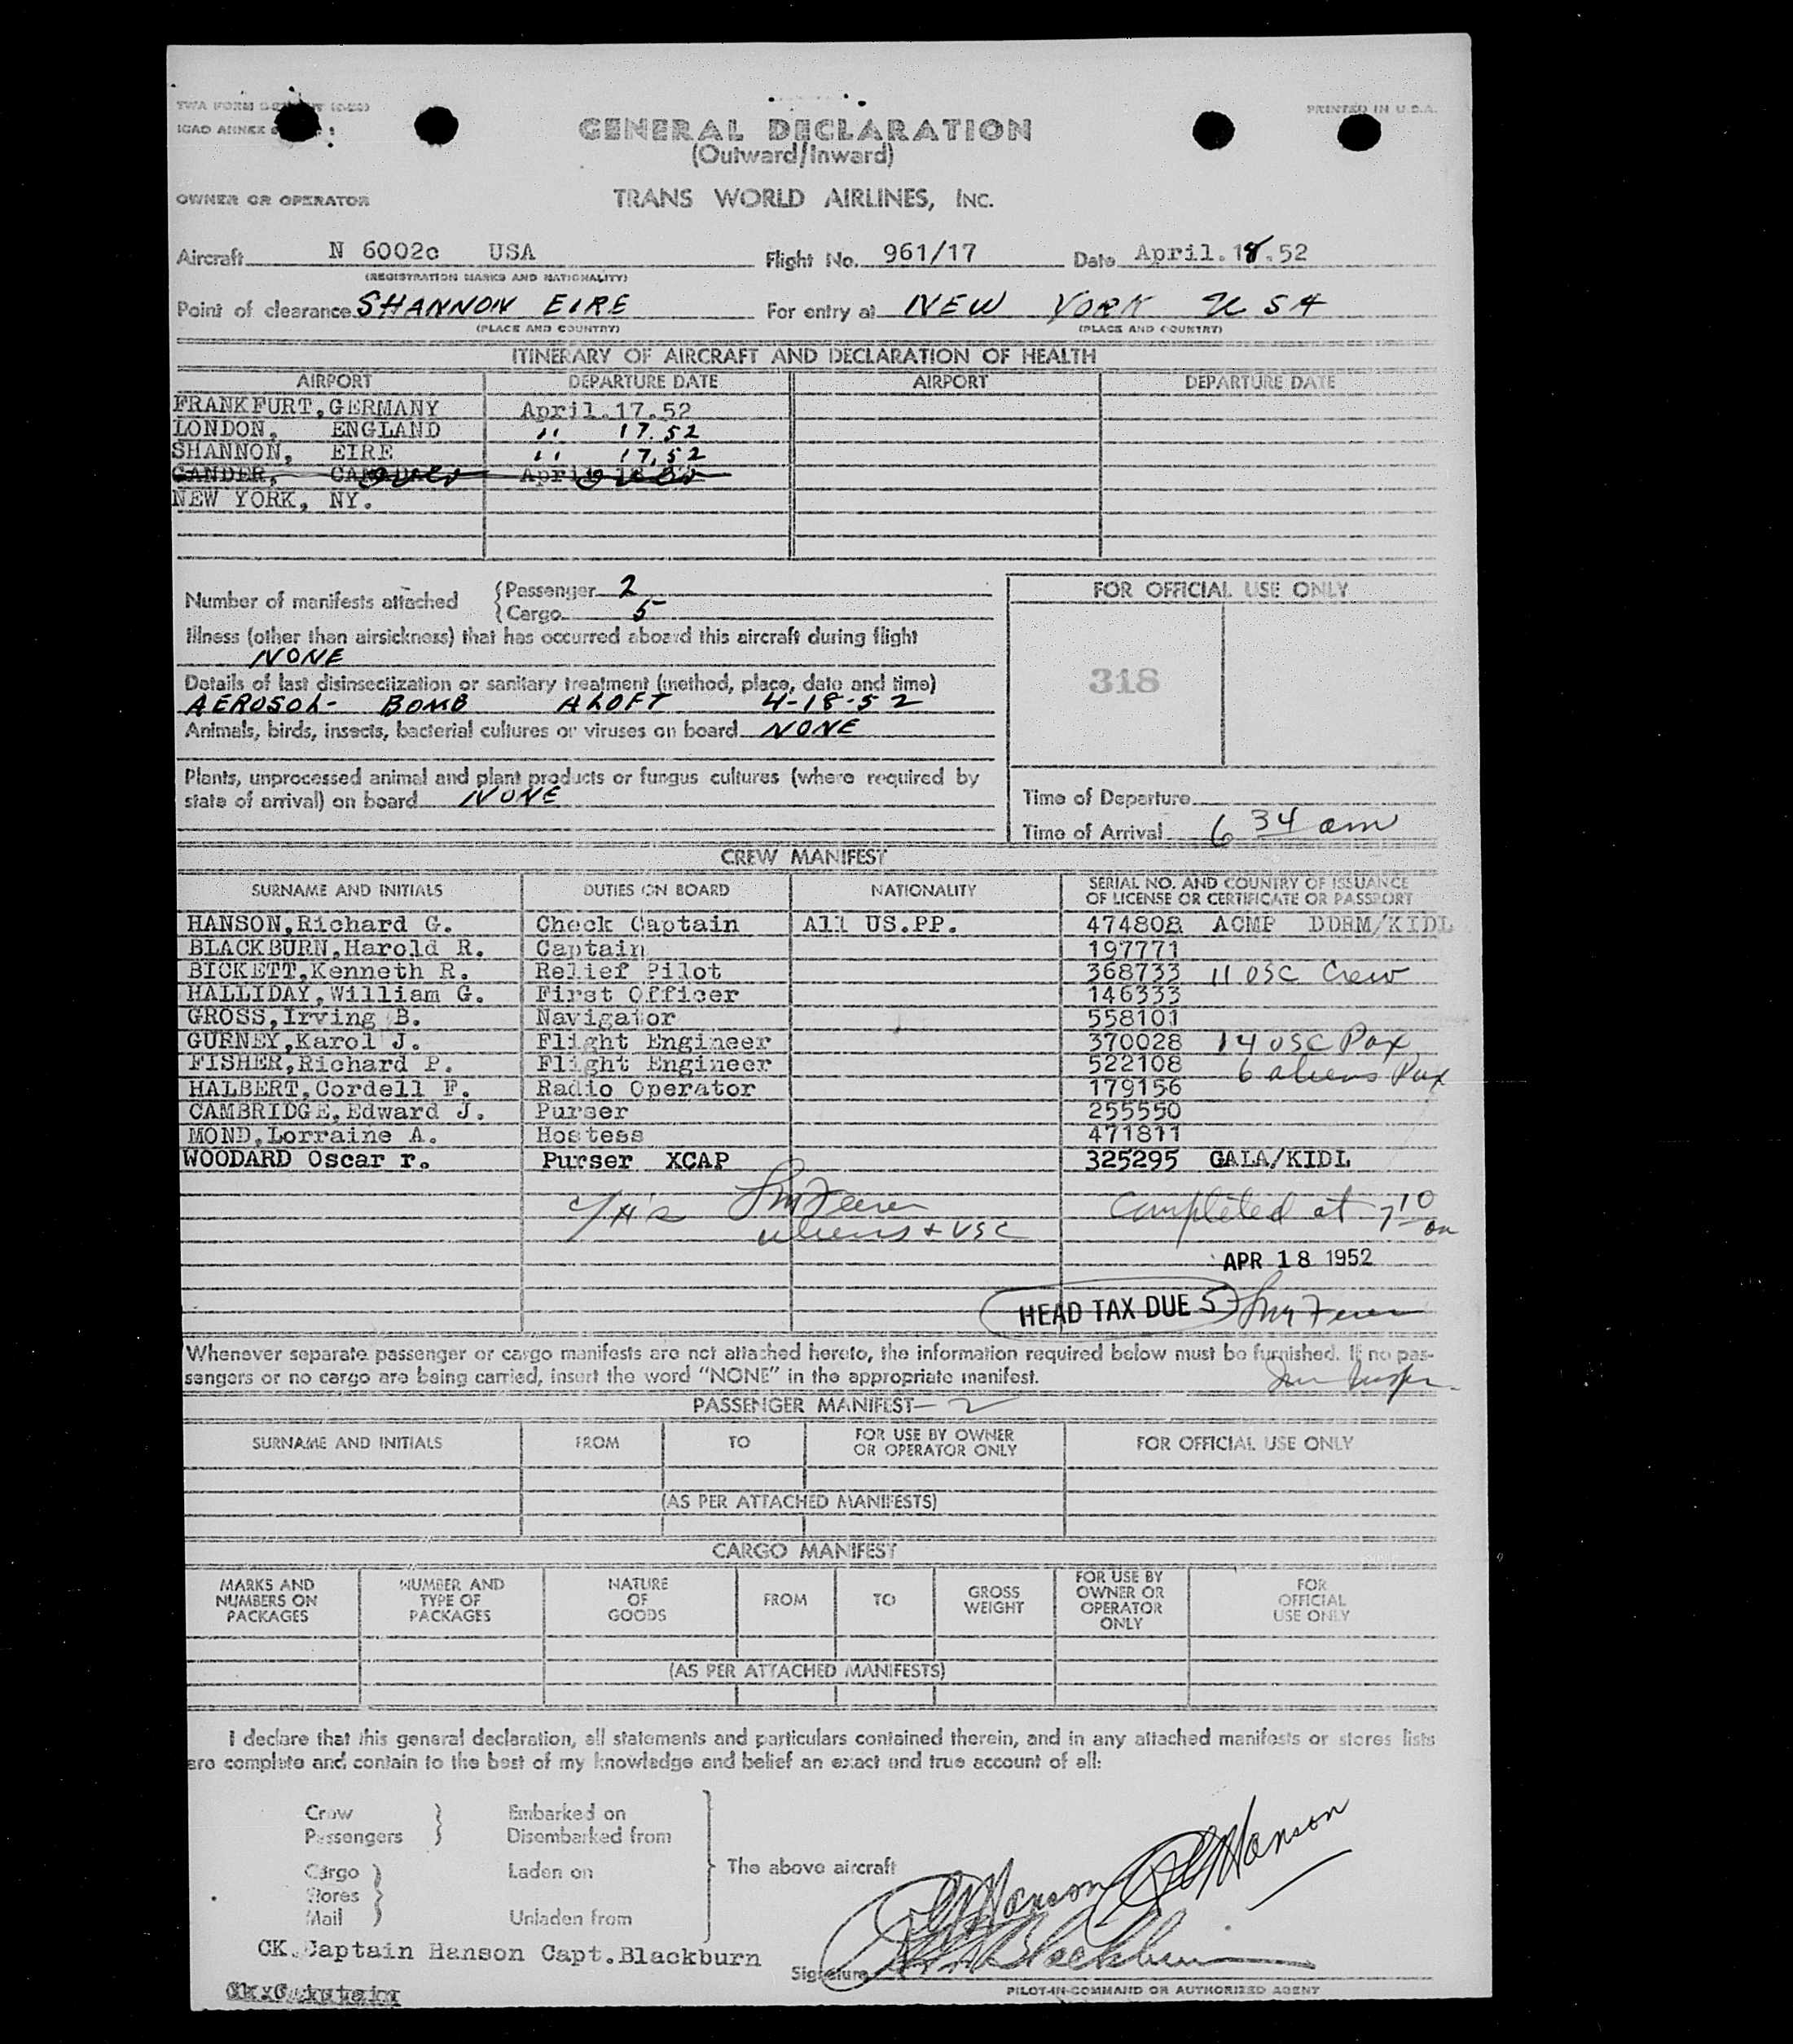 PRINTED IN U.S.A.
GENERAL DECLARATION
(Outward/Inward)
OWNER OR OPERATOR TRANS WORLD AIRLINES, INC.
Aircraft N 6002c USA Flight No. 961/17 Date April.18.52
(REGISTRATION MARKS AND NATIONALITY)
Point of clearance SHANNON EIRE For entry at NEW YORK USA
(PLACE AND COUNTRY) (PLACE AND COUNTRY)
ITINERARY OF AIRCRAFT AND DECLARATION OF HEALTH
AIRPORT DEPARTURE DATE AIRPORT DEPARTURE DATE
FRANKFURT,GERMANY April.17.52
LONDON, ENGLAND " 17.52
SHANNON, EIRE " 17,52
GANDER,
NEW YORK, NY.
Number of manifests attached { Passenger 2
{ Cargo 5
FOR OFFICIAL USE ONLY
Illness (other than airsickness) that has occurred aboard this aircraft during flight
NONE
318
Details of last disinsectization or sanitary treatment (method, place, date and time)
AEROSOL- BOMB ALOFT 4-18-52
Animals, birds, insects, bacterial cultures or viruses on board NONE
Plants, unprocessed animal and plant products or fungus cultures (where required by
state of arrival) on board NONE
Time of Departure
Time of Arrival 6 34 am
CREW MANIFEST
SURNAME AND INITIALS DUTIES ON BOARD NATIONALITY SERIAL NO. AND COUNTRY OF ISSUANCE
OF LICENSE OR CERTIFICATE OR PASSPORT
HANSON,Richard G. Check Captain All US.PP. 474808 ACMP DDRM/KIDL
BLACKBURN,Harold R. Captain 197771
BICKETT,Kenneth R. Relief Pilot 368733 11 USC Crew
HALLIDAY,William G. First Officer 146333
GROSS,Irving B. Navigator 558101
GURNEY,Karol J. Flight Engineer 370028 14 USC Pax
FISHER,Richard P. Flight Engineer 522108 6 aliens Pax
HALBERT,Cordell F. Radio Operator 179156
CAMBRIDGE,Edward J. Purser 255550
MOND,Lorraine A. Hostess 471811
WOODARD Oscar r. Purser XCAP 325295 GALA/KIDL
completed at 7 10
aliens + USC am
APR 18 1952
HEAD TAX DUE 5
Whenever separate passenger or cargo manifests are not attached hereto, the information required below must be furnished. If no pas-
sengers or no cargo are being carried, insert the word "NONE" in the appropriate manifest.
PASSENGER MANIFEST- 2
SURNAME AND INITIALS FROM TO FOR USE BY OWNER OR OPERATOR ONLY FOR OFFICIAL USE ONLY
(AS PER ATTACHED MANIFESTS)
CARGO MANIFEST
MARKS AND NUMBERS ON PACKAGES NUMBER AND TYPE OF PACKAGES NATURE OF GOODS FROM TO GROSS WEIGHT FOR USE BY OWNER OR OPERATOR ONLY FOR OFFICIAL USE ONLY
(AS PER ATTACHED MANIFESTS)
I declare that this general declaration, all statements and particulars contained therein, and in any attached manifests or stores lists
are complete and contain to the best of my knowledge and belief an exact and true account of all:
Crew } Embarked on
Passengers } Disembarked from
The above aircraft
Cargo } Laden on
Stores }
Mail } Unladen from
RGHanson RGHanson
CK.Captain Hanson Capt.Blackburn
Signature HR Blackburn
PILOT-IN-COMMAND OR AUTHORIZED AGENT